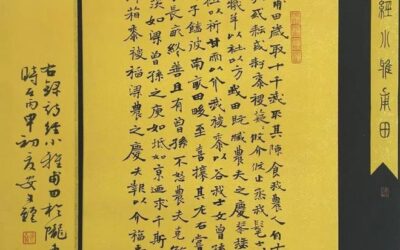 經小雅甫田
甫田歲取十千我取其陳食我農人自古
或耘或耔黍稷薿薿攸介攸止烝我髦士
犧羊以社以方我田既臧農夫之慶琴瑟擊
以祈甘雨以介我稷黍以穀我士女曾孫
子饁彼南畝田畯至喜攘其左右嘗
長畝終善且有曾孫不怒農夫克
茨如梁曾孫之庾如坻如京乃求千斯
箱黍稷稻粱農夫之慶報以介福
右錄詩經小雅甫田於隴
時在丙申初夏安文